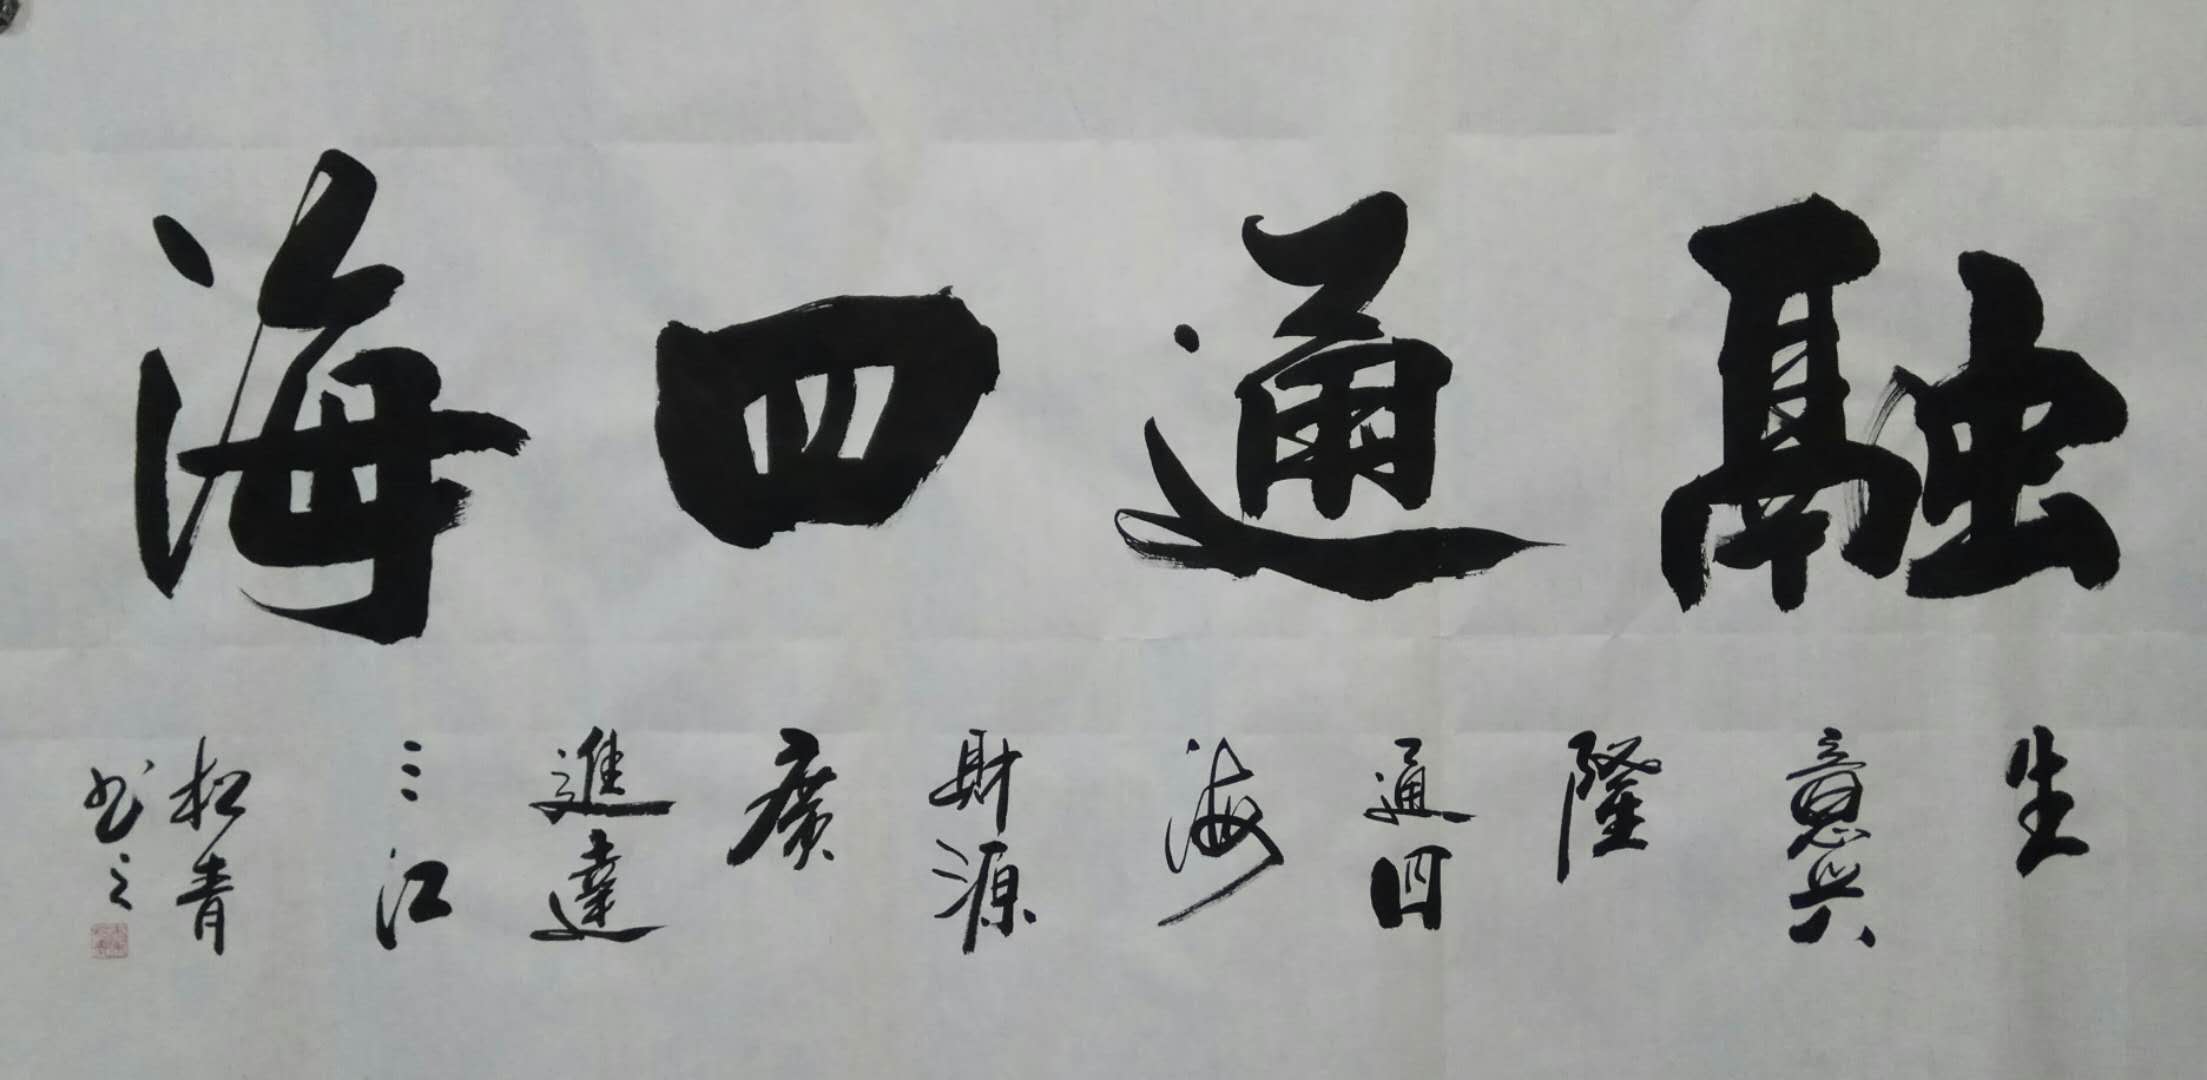 融通四海
生
意興
隆
通四
海
財源
廣
進達
三江
松青
书之